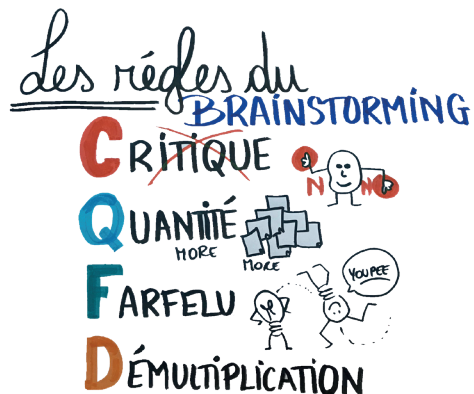 Les régles du
BRAINSTORMING
CRITIQUE
N N
QUANTITÉ
MORE
MORE
FARFELU
YOUPEE
DÉMULTIPLICATION